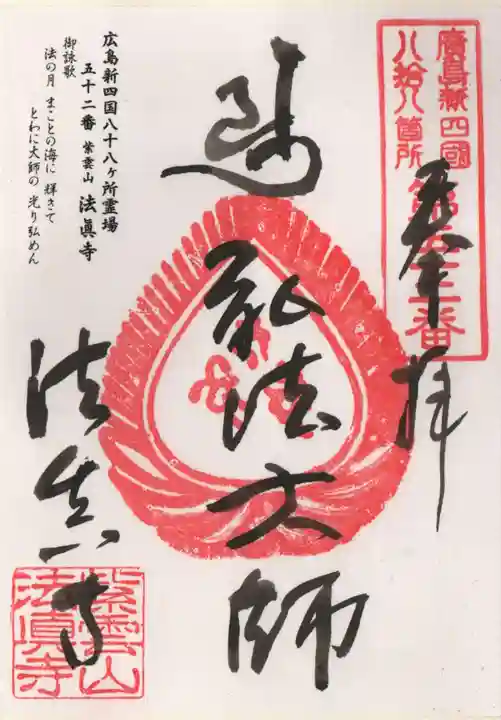 廣島新四國
八拾八箇所
第五十二番
奉拝
弘法大師
法真寺
紫雲山
法眞寺
広島新四国八十八ヶ所霊場
五十二番 紫雲山 法眞寺
御詠歌
法の月 まことの海に 輝きて
とわに大師の 光り弘めん